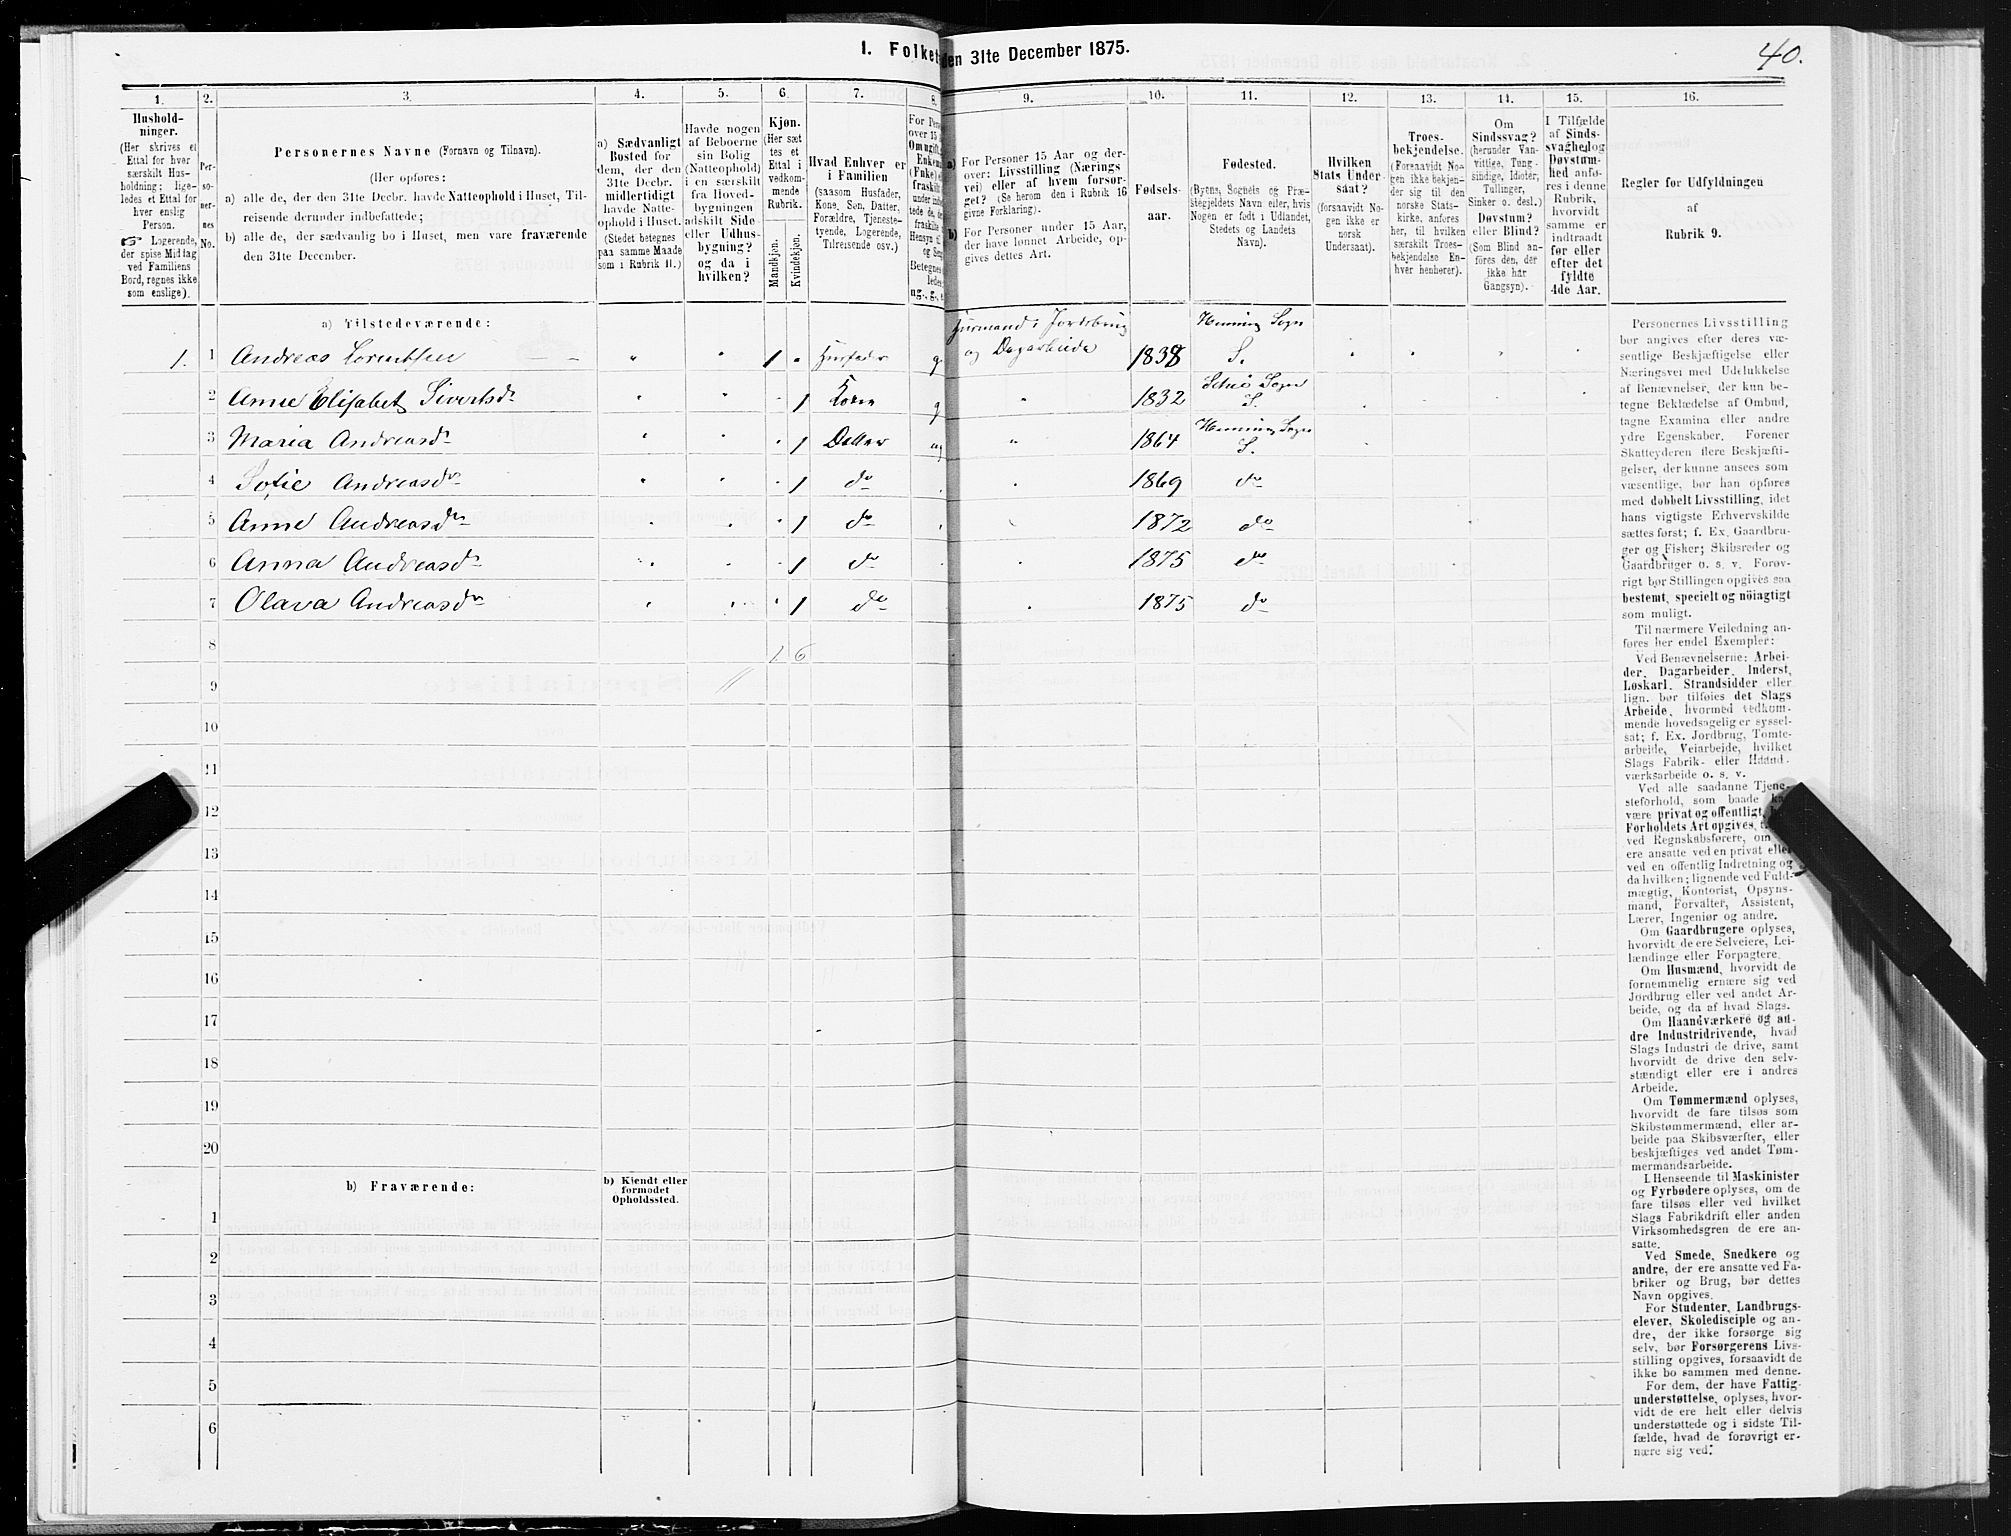 1. Folket
den 31te December 1875.
40.
1.
2.
3.
4.
5.
6.
7.
8.
9.
10.
11.
12.
13.
14.
15.
16.
Hushold-
ninger.
(Her skrives et
Ettal for hver
særskilt Hus-
holdning; lige-
ledes et Ettal for
hver enslig
Person.
☞ Logerende,
der spise Middag
ved Familiens
Bord, regnes ikke
som enslige).
Per-
so-
ner-
nes
No.
Personernes Navne (Fornavn og Tilnavn).
(Her opføres:
a) alle de, der den 31te Decbr. havde Natteophold i Huset, Til-
reisende derunder indbefattede;
b) alle de, der sædvanlig bo i Huset, men vare fraværende
den 31te December.
a) Sædvanligt
Bosted for
dem, der den
31te Decbr.
midlertidigt
havde Natte-
ophold i Huset.
(Stedet betegnes
paa samme Maade
som i Rubrik 11.)
Havde nogen
af Beboerne
sin Bolig
(Natteophold)
i en særskilt
fra Hoved-
bygningen
adskilt Side-
eller Udhus-
bygning?
og da i
hvilken?
Kjøn.
(Her sæt-
tes et
Ettal i
vedkom-
mende
Rubrik.
Mandkjøn.
Kvindekjøn.
Hvad Enhver er
i Familien
(saasom Husfader,
Kone, Søn, Datter,
Forældre, Tjeneste-
tyende, Logerende,
Tilreisende osv.)
For Pers
over 15 A
Om ugift,
Enkem
(Enke) e
fraskilt
a) For Personer 15 Aar og der-
over: Livsstilling (Nærings-
vei) eller af hvem forsør-
get? (Se herom den i Rubrik 16
givne Forklaring).
b) For Personer under 15 Aar,
der have lønnet Arbeide, op-
gives dettes Art.
Fødsels-
aar.
Fødested.
(Byens, Sognets og Præ-
stegjeldets Navn eller, hvis
Nogen er født i Udlandet,
Stedets og Landets
Navn).
Hvilken
Stats Under-
saat?
(forsaavidt No-
gen ikke er
norsk
Undersaat).
Troes-
bekjendelse.
(Foreaavidt No-
gen ikke bekjen-
der sig til den
norske Stats-
kirke, anføres
her, til hvilken
særskilt Troes-
bekjendelse En-
hver henhører).
Om
Sindssvag?
(herunder Van-
vittige, Tung-
sindige, Idioter,
Tullinger,
Sinker o. desl.)
Døvstum?
eller Blind?
(Som Blind an-
føres den, der
ikke har
Gangsyn).
I Tilfælde
af Sinds-
svaghed og
Døvstum-
hed anfø-
res i denne
Rubrik,
hvorvidt
samme er
indtraadt
før eller
efter det
fyldte
4de Aar.
Regler for Udfyldningen
af
Rubrik 9.
a) Tilstedeværende:
1. 1 Andreas Lorentsen " " 1 " Husfader g. Husmand i Jordbrug og Dagarbeide 1838 Henning Sogn S.
2 Anne Elisabet Sivertsdr " 1 Kone g " 1832 Sogn S.
3 Maria Andreasdr " 1 Datter ug " 1864 Henning Sogn S.
4 Sofie Andreasdr " 1 do 1869 do
5 Anne Andreasdr 1 do 1872 do
6 Anna Andreasdr 1 do 1875 do
7 Olava Andreasdr 1 do 1875 do
8 1 6
9
10
11
12
13
14
15
16
17
18
19
20
b) Fraværende:
b) Kjendt eller
formodet
Opholdssted.
1
2
3
4
5
6
Personernes Livsstilling
bør angives efter deres væ-
sentlige Beskjæftigelse eller
Næringsvei med Udelukkelse
af Benævnelser, der kun be-
tegne Beklædelse af Ombud,
tagne Examina eller andre
ydre Egenskaber. Forener
Skatteyderen flere Beskjæfti-
gelser, der kunne ansees som
væsentlige, bør han opføres
med dobbelt Livsstilling, idet
hans vigtigste Erhvervskilde
sættes først; f. Ex. Gaardbru-
ger og Fisker; Skibsreder og
Gaardbruger o. s. v. Forøv-
rigt bør Stillingen opgives saa
bestemt, specielt og nøiagtigt
som muligt.
Til nærmere Veiledning an-
føres her endel Exempler:
Ved Benævnelserne: Arbei-
der, Dagarbeider, Inderst,
Løskarl, Strandsidder eller
lign. bør tilføies det Slags
Arbeide, hvormed vedkom-
mende hovedsagelig er syssel-
sat; f. Ex. Jordbrug, Tomte-
arbeide, Veiarbeide, hvilket
Slags Fabrik- eller Haand-
værksarbeide o. s. v.
Ved alle saadanne Tjene-
steforhold, som baade kan
være privat og offentligt,
Forholdets Art opgives,
ved Regnskabsførere, om
ere ansatte ved en privat eller
ved en offentlig Indretning og
da hvilken; lignende ved Fuld-
mægtig, Kontorist, Opsyns-
mand, Forvalter, Assistent,
Lærer, Ingeniør og andre.
Om Gaardbrugere oplyses,
hvorvidt de ere Selveiere, Lei-
lændinge eller Forpagtere.
Om Husmænd, hvorvidt de
fornemmelig ernære sig ved
Jordbrug eller ved andet Ar-
beide, og da af hvad Slags.
Om Haandværkere og an-
dre Industridrivende, hvad
Slags Industri de drive, samt
hvorvidt de drive den selv-
stændigt eller ere i andres
Arbeide.
Om Tømmermænd oplyses,
hvorvidt de fare tilsøs som
Skibstømmermænd, eller ar-
beide paa Skibsværfter, eller
beskjæftiges ved andet Tøm-
mermandsarbeide.
I Henseende til Maskinister
og Fyrbødere oplyses, om de
fare tilsøs eller ved hvilket
Slags Fabrikdrift eller anden
Virksomhedsgren de ere an-
satte.
Ved Smede, Snedkere og
andre, der ere ansatte ved Fa-
briker og Brug, bør dettes
Navn opgives.
For Studenter, Landbrugs-
elever, Skoledisciple og an-
dre, der ikke forsørge sig
selv, bør Forsørgerens Livs-
stilling opgives, forsaavidt de
ikke bo sammen med denne.
For dem, der have Fattig-
understøttelse, oplyses, hvor-
vidt de ere helt eller delvis
understøttede og i sidste Til-
fælde, hvad de forøvrigt er-
nære sig ved.